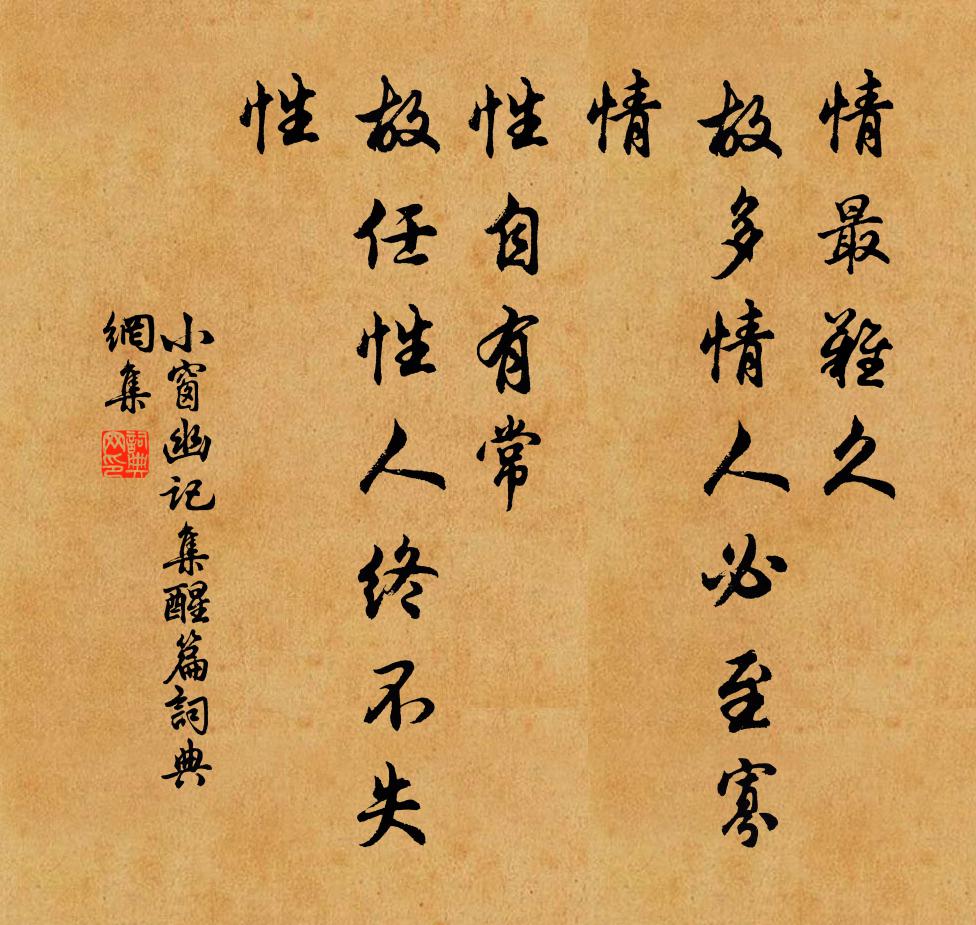 情最難久
故多情人必至寡
情
性自有常
故任性人終不失
性
小窗幽記集醒篇詞典
網集
詞典
网印